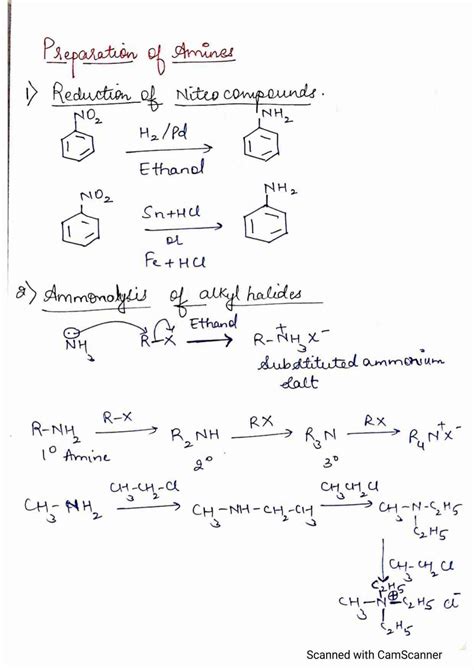 Preparation of Amines
1) Reduction of Nitrocompounds.
NO2 H2/Pd Ethanol NH2
NO2 Sn+HCl or Fe+HCl NH2
2) Ammonolysis of alkyl halides
NH3 R-X Ethanol R-NH3 X-
+
Substituted ammonium
salt
R-NH2 R-X R2NH RX R3N RX R4N+X-
1° Amine 2° 3°
CH3-NH2 CH3-CH2-Cl CH3-NH-CH2-CH3 CH3CH2Cl CH3-N-C2H5
C2H5
CH3-CH2Cl
C2H5
CH3-N-C2H5 Cl-
⊕
C2H5
Scanned with CamScanner